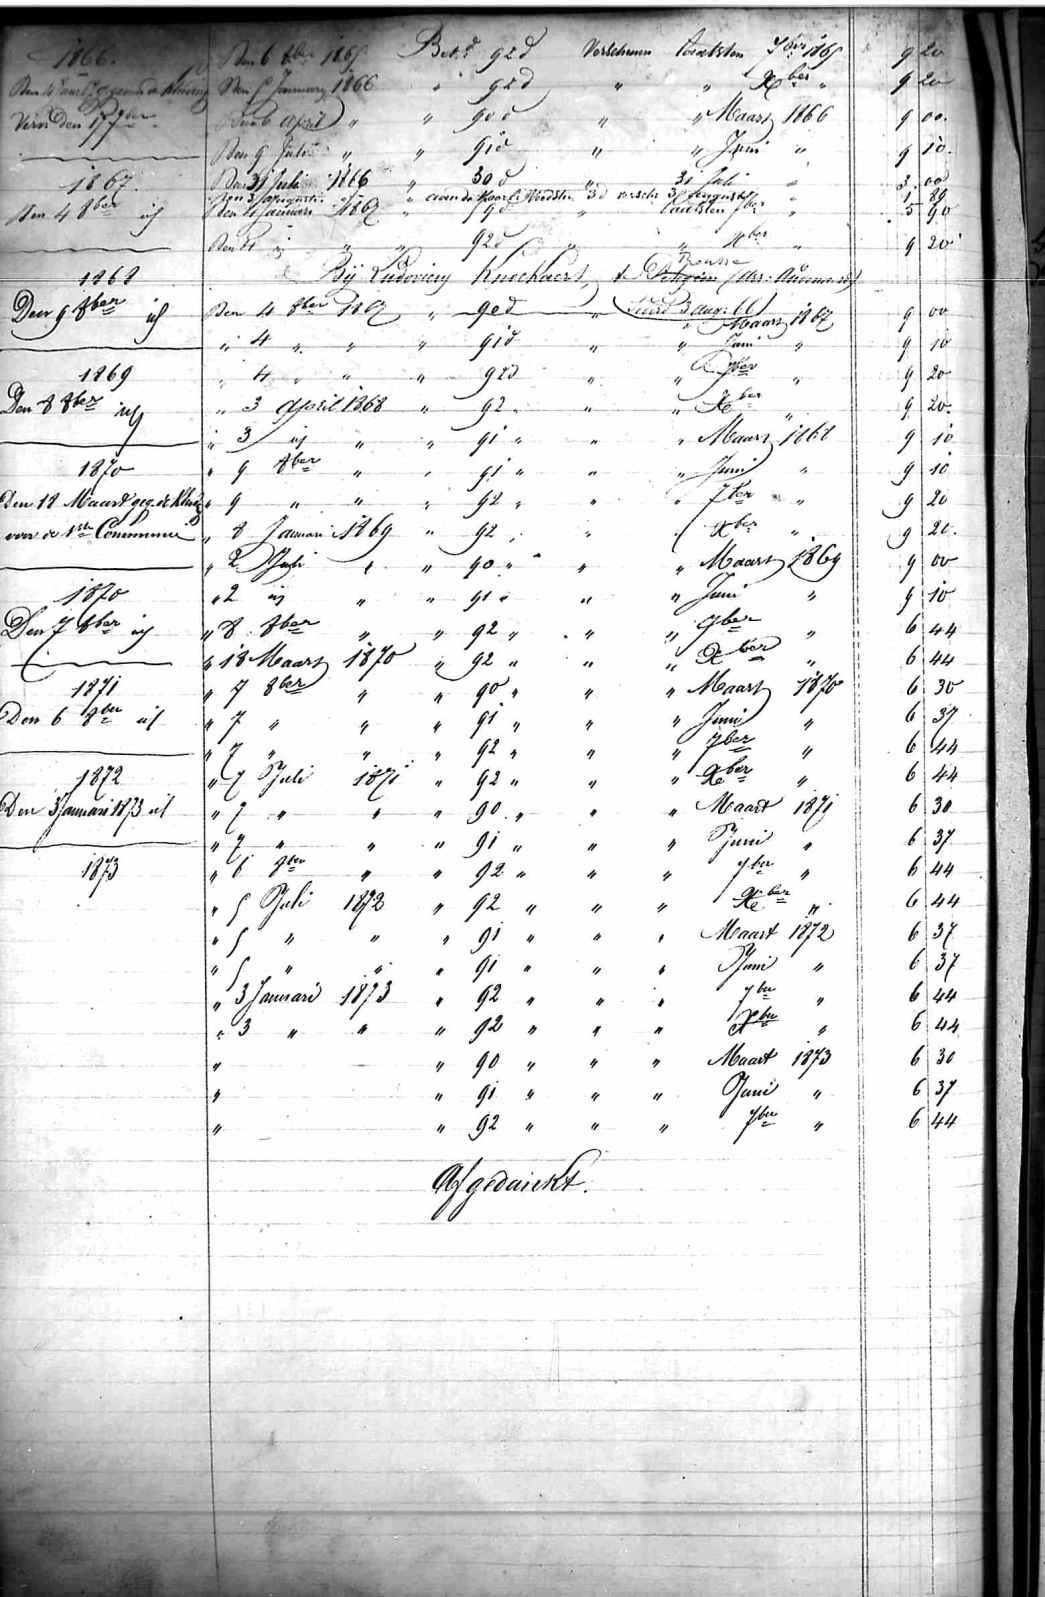 1866. Den 6 8ber 1865 Bet.d 92 d Verschenen laatsten 7ber 1865 9 20
Den 5 Januarij 1866 " 92 d " " Xber " 9 20
Den 6 April " " 90 d " " Maart 1866 9 00.
Den 9 Juli " " 91 d " " Juni " 9 10.
1867. Den 31 Juli 1866 " 30 d " 31 Juli " 3. 00
31 Augusti
Den 4 8ber id Den 4 Januari 1867 laatsten 7ber " 5 90
Den 4 id " " 92 d " " Xber " 9 20
1868 Bij Ludovicus
Den 9 8ber id Den 4 8ber 1867 " 90 d " Maart 1867 9 00
" 4 " " " 91 d " " Juni " 9 10
1869 " 4 " " " 92 d " " 7ber " 9 20
Den 8 8ber id " 3 April 1868 " 92 " " Xber " 9 20.
" 3 id " " 91 " " " Maart 1868 9 10
1870 " 9 8ber " " 91 " " Juni " 9 10
Den 18 Maart geg. de kleed " 9 " " " 92 " " " 7ber " 9 20
voor de 1ste Communie " 8 Januari 1869 " 92 " " Xber " 9 20.
" 2 Juli " " 90 " " " Maart 1869 9 00
1870 " 2 id " " 91 " " " Juni " 9 10
Den 7 8ber id " 8 8ber " " 92 " " " 7ber " 6 44
" 18 Maart 1870 " 92 " " " Xber " 6 44
1871 " 7 8ber " " 90 " " " Maart 1870 6 30
Den 6 8ber id " 7 " " " 91 " " " Juni " 6 37
" 7 " " " 92 " " " 7ber " 6 44
1872 " 7 Juli 1871 " 92 " " " Xber " 6 44
Den 3 Januari 1873 id " 7 " " " 90 " " " Maart 1871 6 30
" 7 " " " 91 " " " Juni " 6 37
1873 " 6 8ber " " 92 " " " 7ber " 6 44
" 5 Juli 1872 " 92 " " " Xber " 6 44
" 5 " " " 91 " " " Maart 1872 6 37
" 5 " " " 91 " " " Juni " 6 37
" 3 Januari 1873 " 92 " " " 7ber " 6 44
" 3 " " " 92 " " " Xber " 6 44
" " 90 " " " Maart 1873 6 30
" " 91 " " " Juni " 6 37
" " 92 " " " 7ber " 6 44
Afgedankt.